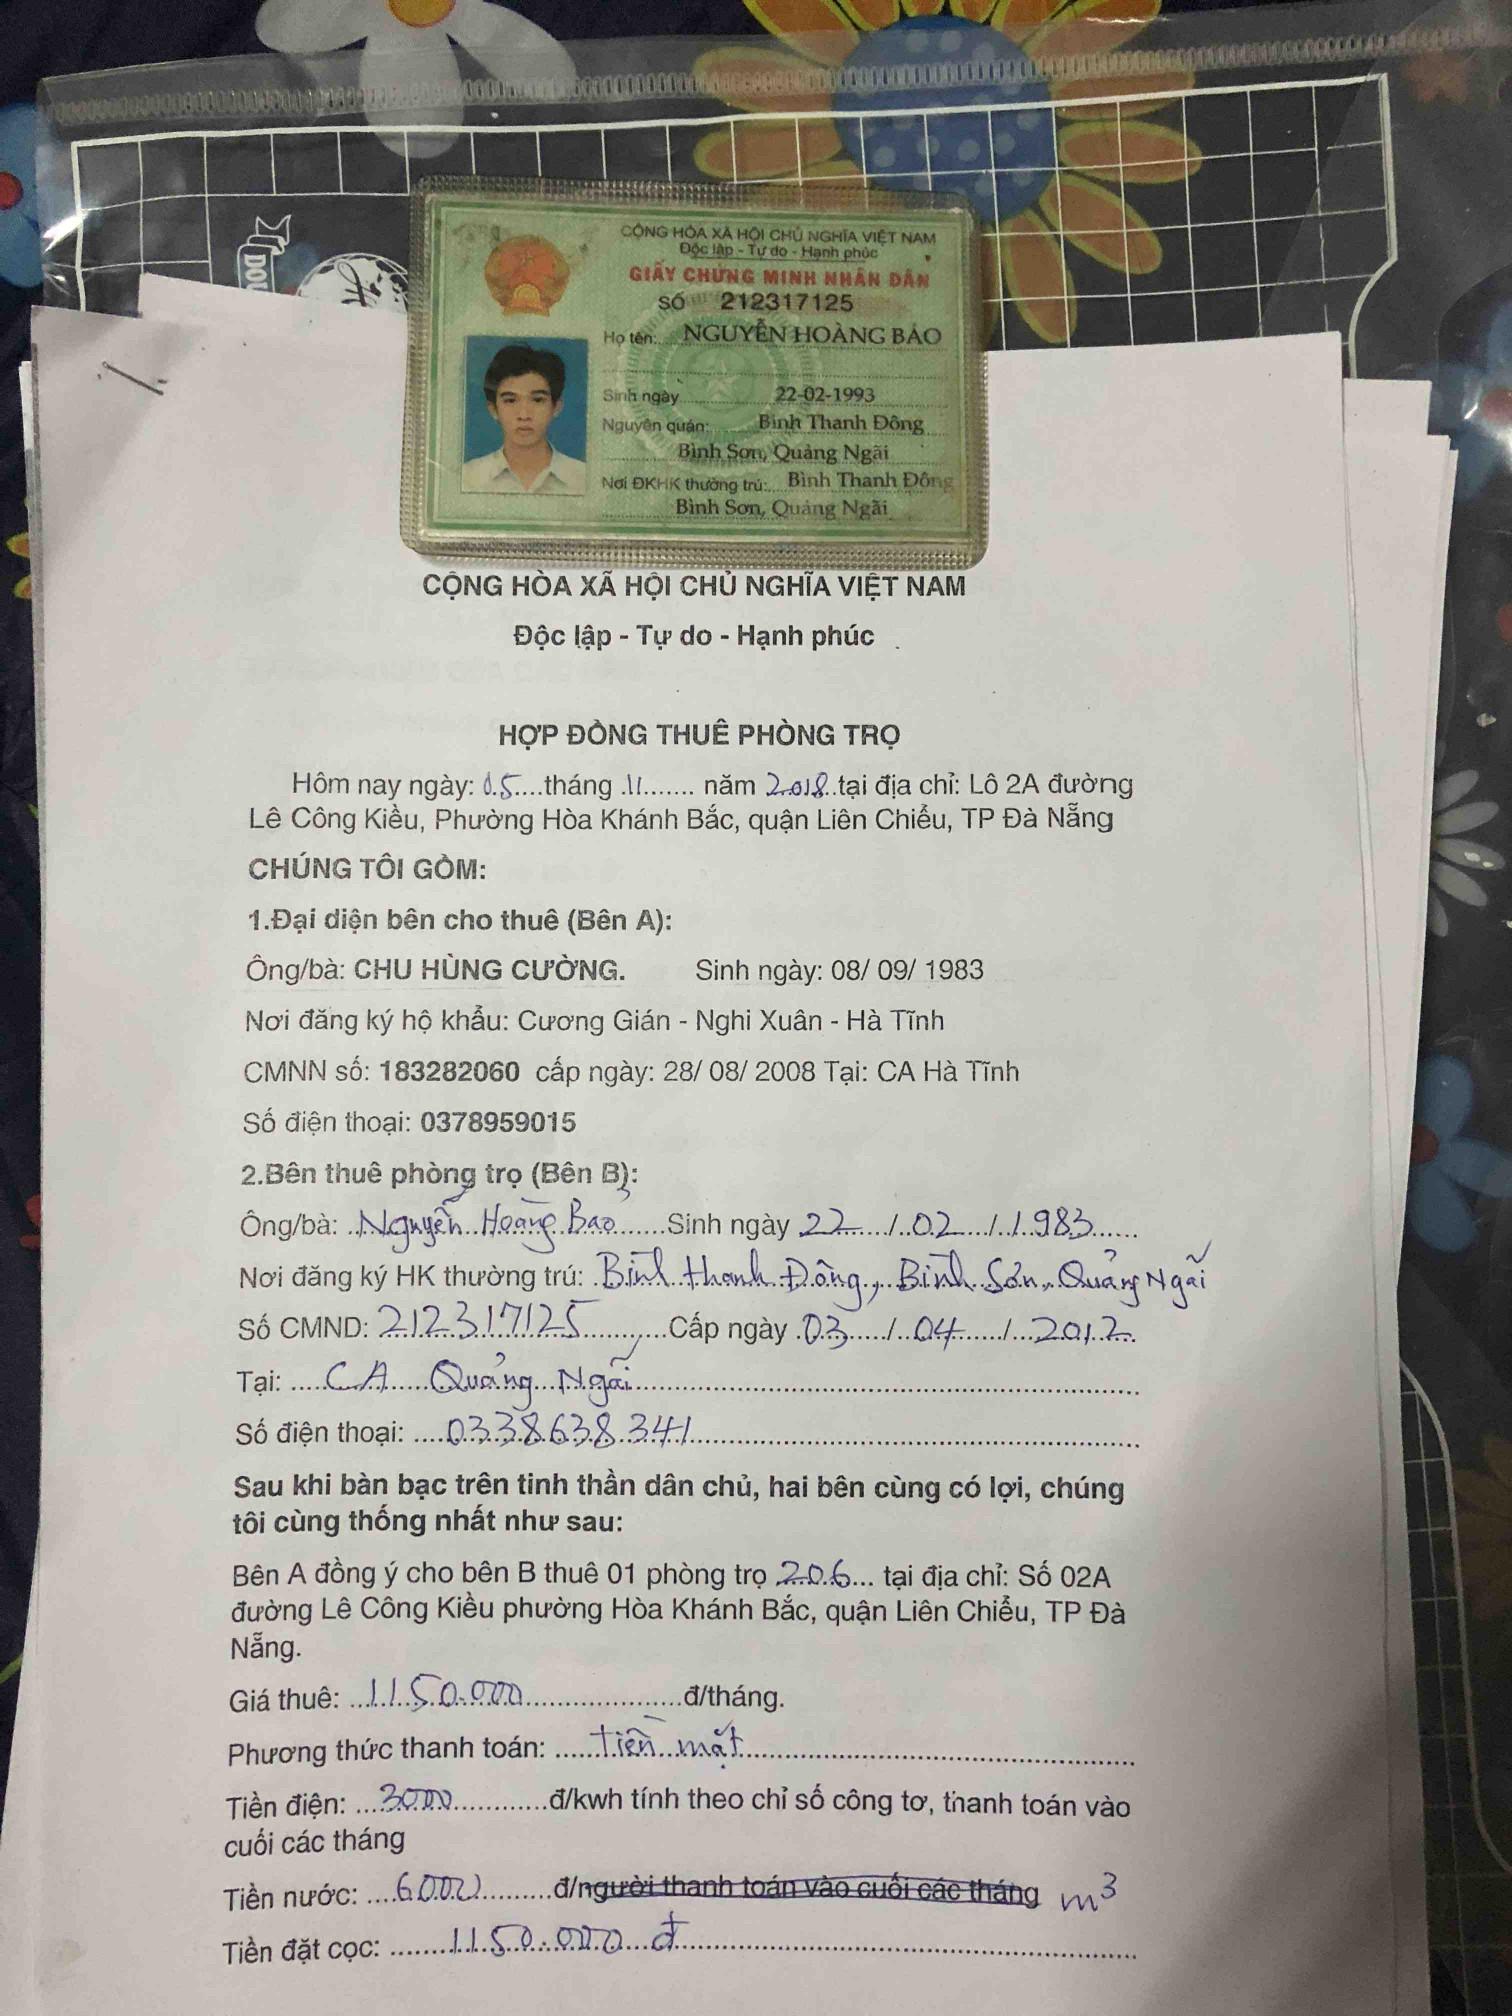 DOU
CỘNG HÒA XÃ HỘI CHỦ NGHĨA VIỆT NAM
Độc lập - Tự do - Hạnh phúc
GIẤY CHỨNG MINH NHÂN DÂN
SỐ 212317125
Họ tên: NGUYỄN HOÀNG BẢO
Sinh ngày 22-02-1993
Nguyên quán: Bình Thanh Đông
Bình Sơn, Quảng Ngãi
Nơi ĐKHK thường trú: Bình Thanh Đông
Bình Sơn, Quảng Ngãi
CỘNG HÒA XÃ HỘI CHỦ NGHĨA VIỆT NAM
Độc lập - Tự do - Hạnh phúc
HỢP ĐỒNG THUÊ PHÒNG TRỌ
Hôm nay ngày: 05....tháng .11....... năm 2018..tại địa chỉ: Lô 2A đường
Lê Công Kiều, Phường Hòa Khánh Bắc, quận Liên Chiểu, TP Đà Nẵng
CHÚNG TÔI GỒM:
1.Đại diện bên cho thuê (Bên A):
Ông/bà: CHU HÙNG CƯỜNG. Sinh ngày: 08/ 09/ 1983
Nơi đăng ký hộ khẩu: Cương Gián - Nghi Xuân - Hà Tĩnh
CMNN số: 183282060 cấp ngày: 28/ 08/ 2008 Tại: CA Hà Tĩnh
Số điện thoại: 0378959015
2.Bên thuê phòng trọ (Bên B):
Ông/bà: Nguyễn Hoàng Bảo Sinh ngày 22 / 02 / 1983
Nơi đăng ký HK thường trú: Bình Thanh Đông, Bình Sơn, Quảng Ngãi
Số CMND: 212317125 Cấp ngày 03 / 04 / 2012
Tại: CA Quảng Ngãi
Số điện thoại: 0338638341
Sau khi bàn bạc trên tinh thần dân chủ, hai bên cùng có lợi, chúng
tôi cùng thống nhất như sau:
Bên A đồng ý cho bên B thuê 01 phòng trọ 206... tại địa chỉ: Số 02A
đường Lê Công Kiều phường Hòa Khánh Bắc, quận Liên Chiểu, TP Đà
Nẵng.
Giá thuê: 1150.000 đ/tháng.
Phương thức thanh toán: tiền mặt
Tiền điện: 3000 đ/kwh tính theo chỉ số công tơ, thanh toán vào
cuối các tháng
Tiền nước: 6000 đ/người thanh toán vào cuối các tháng m³
Tiền đặt cọc: 1150.000 đ